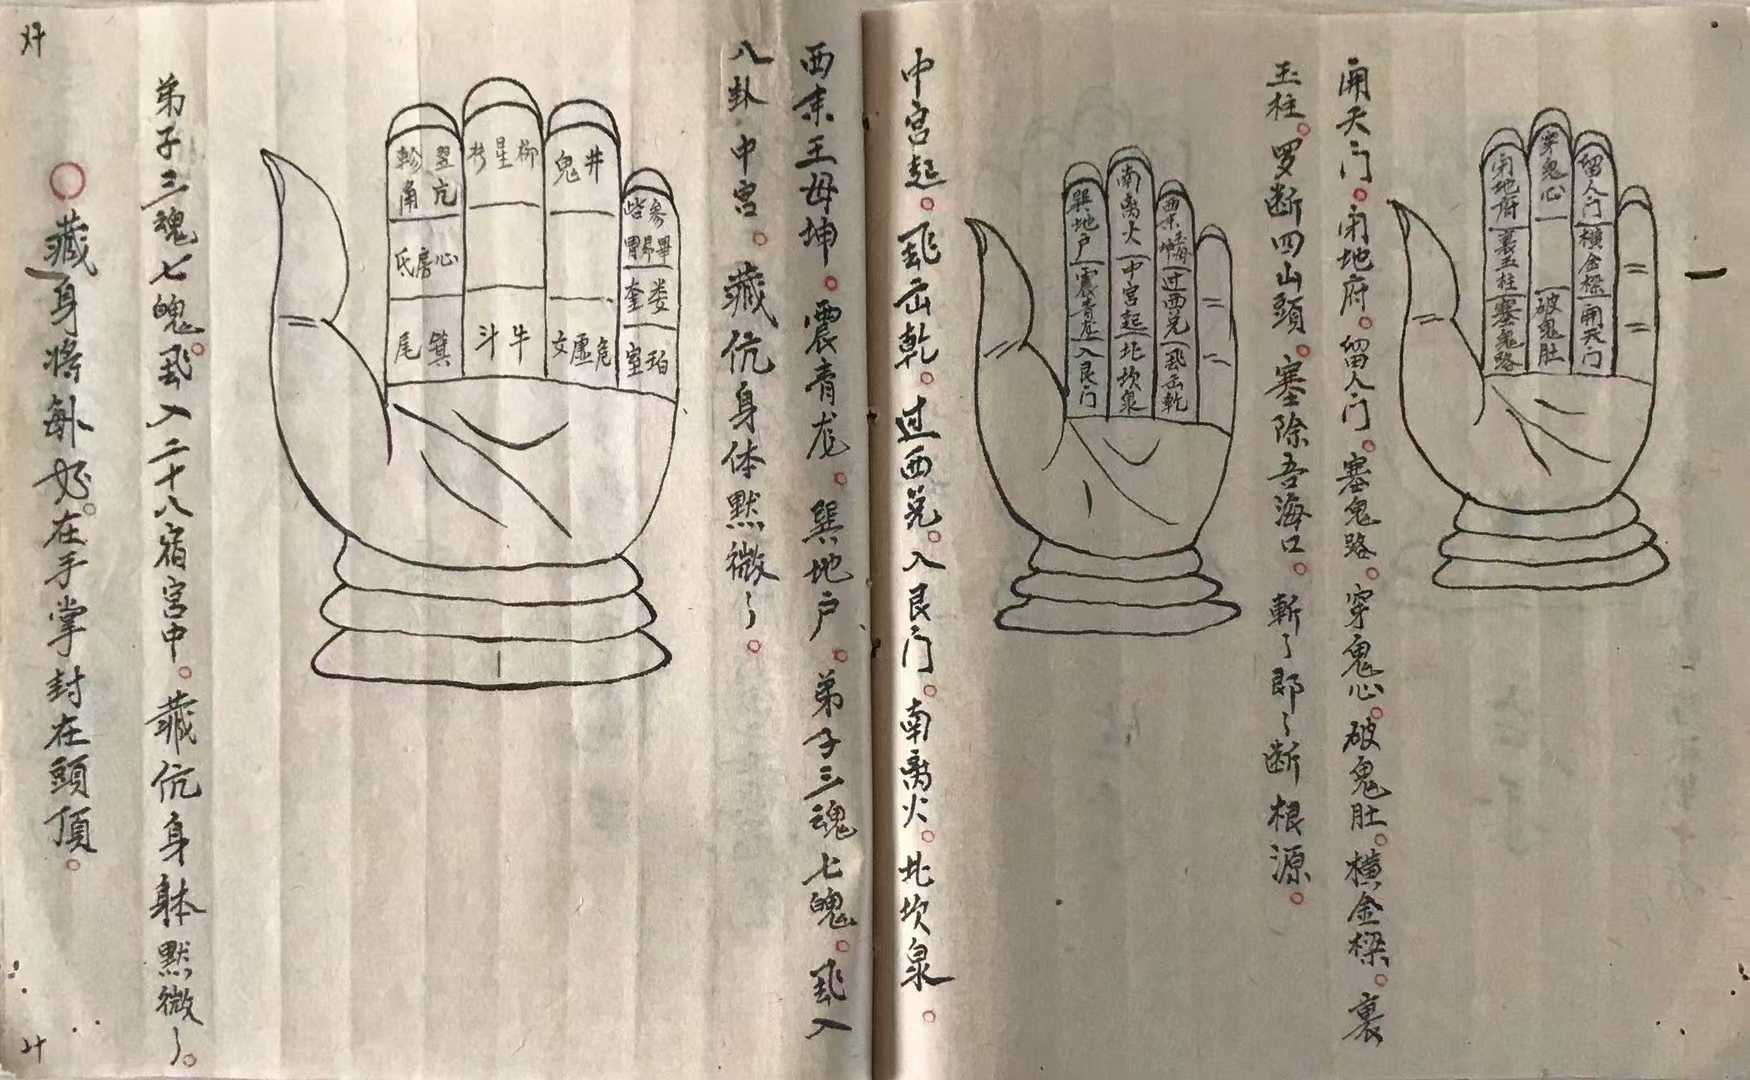 開天门。闭地府。留人门。塞鬼路。穿鬼心。破鬼肚。横金樑。裏
玉柱。罗断四山頭。塞除吾海口。斬〻郎〻断根源。
留人门
横金樑
開天门
穿鬼心
破鬼肚
闭地府
裏玉柱
塞鬼路
中宫起。飛缶乾。过西兑。入艮门。南离火。北坎泉。
西来王母坤
过西兑
飛缶乾
南离火
中宫起
北坎泉
巽地户
震青龙
入艮门
西来王母坤。震青龙。巽地户。弟子三魂七魄。飛入
八卦中宫。藏伉身体默微〻。
参
觜
畢
昴
胃
娄
奎
珀
室
井
鬼
危
虚
女
柳
星
牛
斗
翌
軫
亢
角
心
房
氐
箕
尾
弟子三魂七魄。飛入二十八宿宫中。藏伉身躰默微〻。
藏身将每好。在手掌封在頭頂。